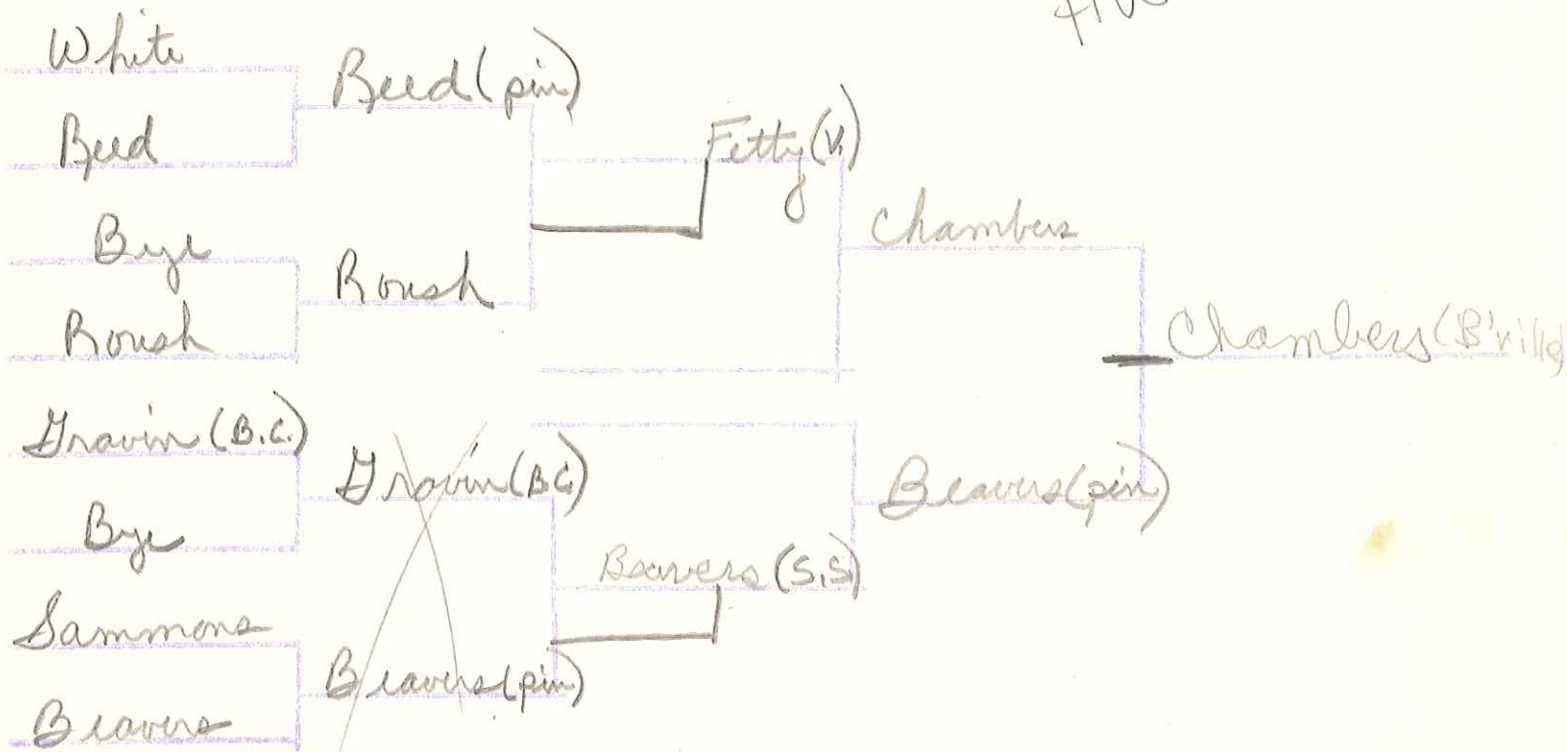 White
Beed
Bye
Roush
Gravin (B.C.)
Bye
Sammons
Beavers
Beed (pin)
Roush
Gravin (B.C.)
Beavers (pin)
Fetty (V.)
Beavers (S.S.)
Chambers
Beavers (pin)
Chambers (B'ville)